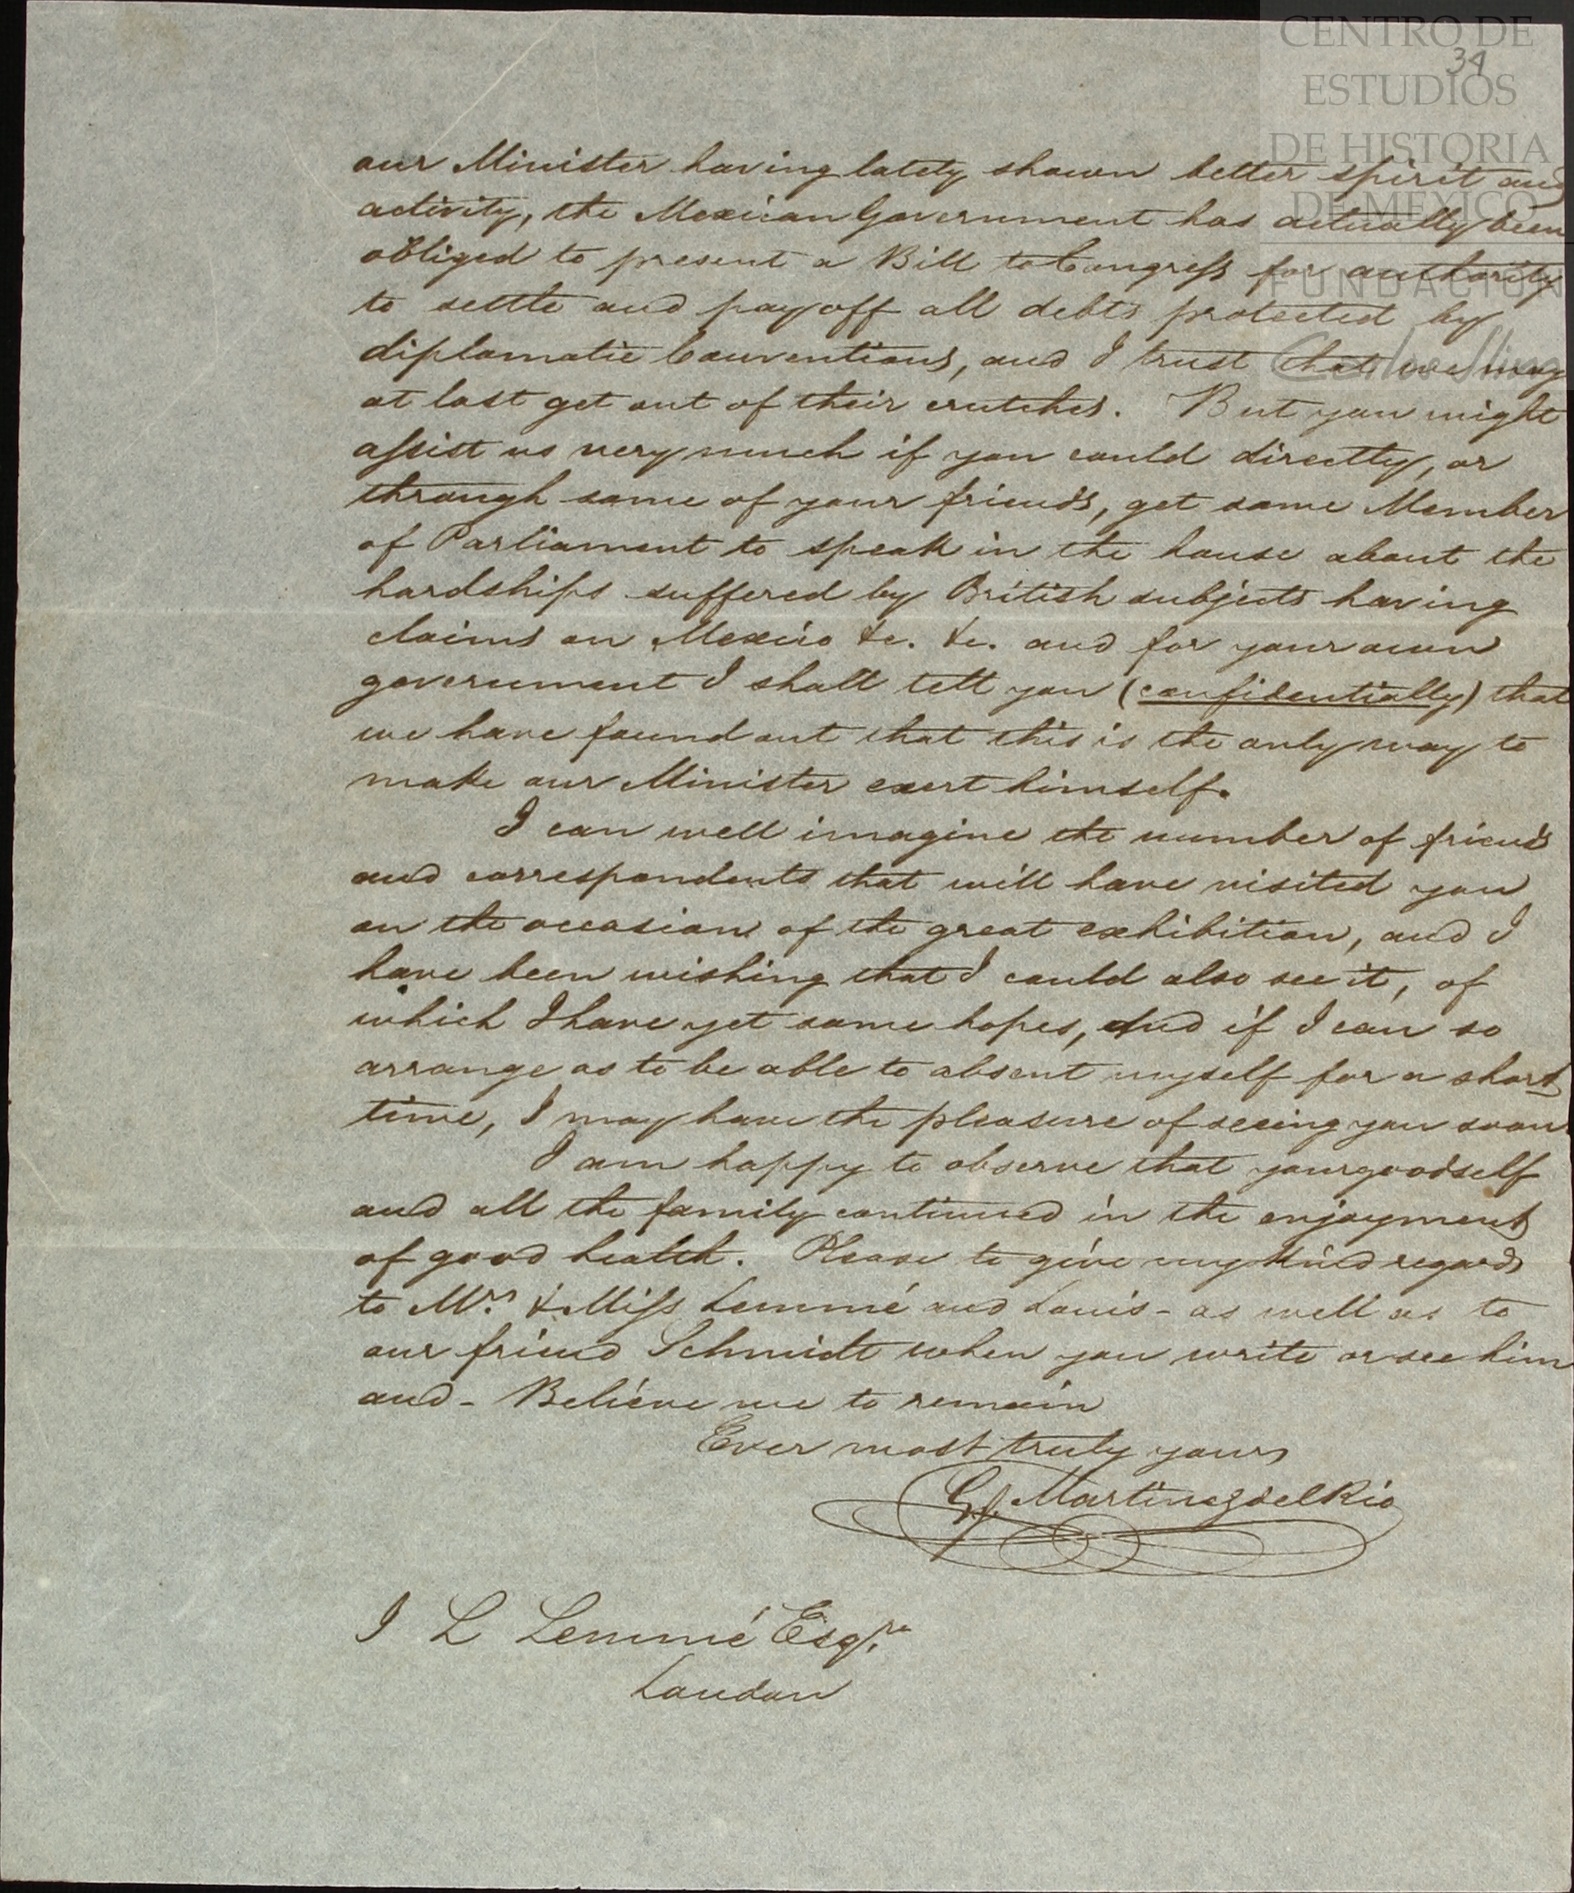 CENTRO DE
ESTUDIOS
DE HISTORIA
DE MÉXICO
FUNDACIÓN
Carlos Slim
34
our Minister having lately shown better spirit and
activity, the Mexican Government has actually been
obliged to present a Bill to Congress for authority
to settle and pay off all debts protected by
diplomatic Conventions, and I trust that we may
at last get out of their crutches. But you might
assist us very much if you could directly, or
through some of your friends, get some Member
of Parliament to speak in the house about the
hardships suffered by British subjects having
claims on Mexico &c. &c. and for your own
government I shall tell you (confidentially) that
we have found out that this is the only way to
make our Minister exert himself.
I can well imagine the number of friends
and correspondents that will have visited you
on the occasion of the great exhibition, and I
have been wishing that I could also see it, of
which I have yet some hopes, and if I can so
arrange as to be able to absent myself for a short
time, I may have the pleasure of seeing you soon.
I am happy to observe that yourgoodself
and all the family continued in the enjoyment
of good health. Please to give my kind regards
to Mrs. & Miss Lemmé and Louis - as well as to
our friend Schmidt when you write or see him
and - Believe me to remain
Ever most truly yours
G. Martinez del Rio
I L Lemmé Esqre.
London